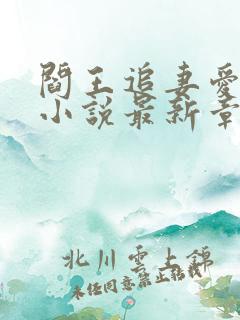 閻王追妻愛
小說最新章
北川雲上錦
未经同意禁止转载